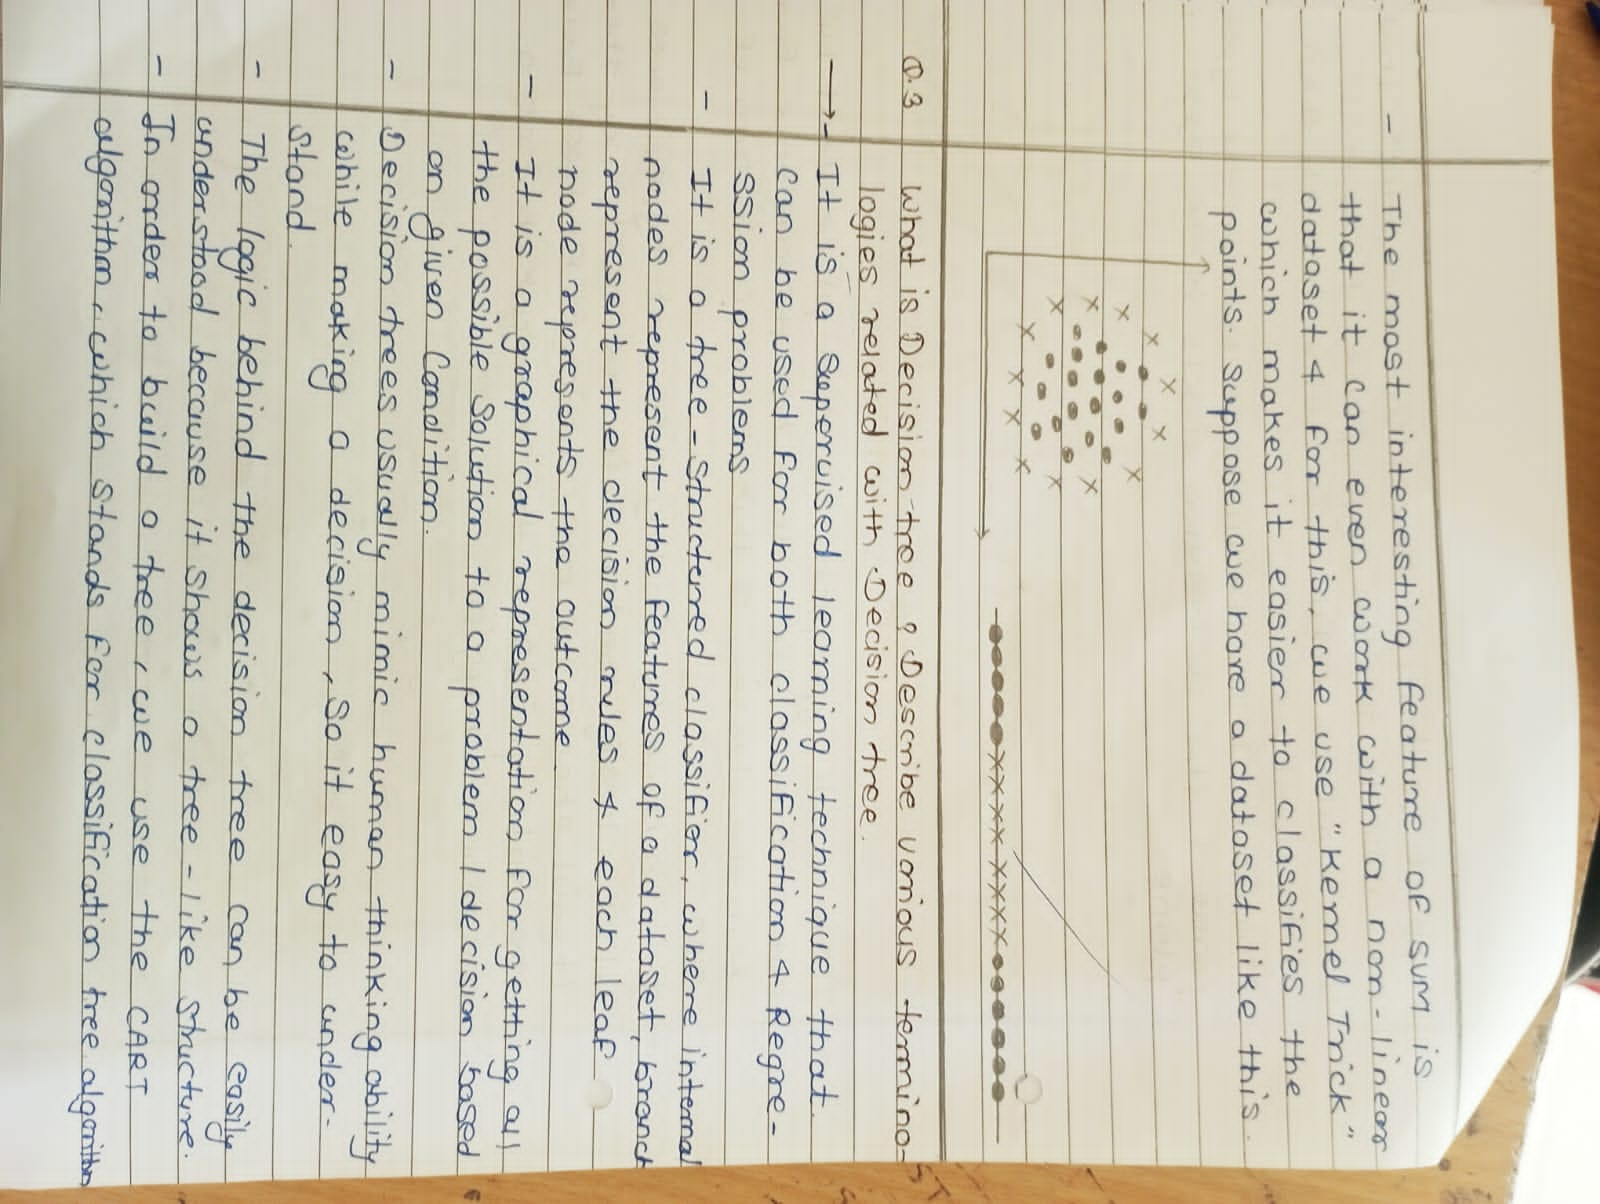 - The most interesting feature of SVM is
that it can even work with a non-linear
dataset & for this, we use "Kernel Trick"
which makes it easier to classifies the
points. Suppose we have a dataset like this.
Q.3 What is Decision tree? Describe various termino-
logies related with Decision tree.
→ - It is a Supervised learning technique that
can be used for both classification & Regre-
ssion problems
- It is a tree-Structured classifier, where internal
nodes represent the features of a dataset, branch
represent the decision rules & each leaf
node represents the outcome.
- It is a graphical representation for getting all
the possible solution to a problem / decision based
on given Condition.
- Decision trees usually mimic human thinking ability
while making a decision, so it easy to under-
stand.
- The logic behind the decision tree can be easily
understood because it shows a tree-like structure.
- In order to build a tree, we use the CART
algorithm, which stands for classification tree algorithm